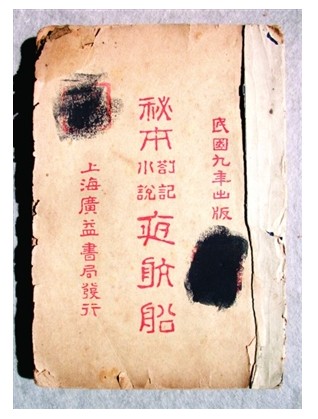 民國九年出版
秘本劄記小說夜航船
上海廣益書局發行